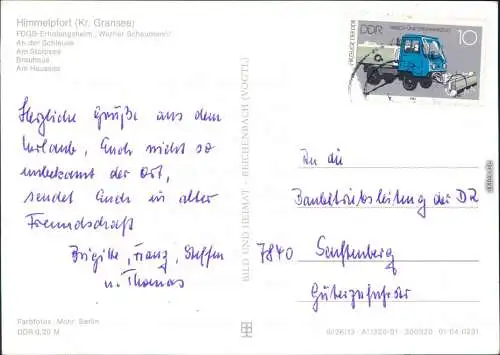 Himmelpfort (Kr. Gransee)
FDGB-Erholungsheim „Werner Scheumann"
An der Schleuse
Am Stolpsee
Brauhaus
Am Haussee
Herzliche Grüße aus dem
Urlaub, Euch nicht so
unbekannt der Ort,
sendet Euch in alter
Freundschaft
Brigitte, Franz, Steffen
u. Thomas
Farbfotos: Mohr, Berlin
DDR 0,20 M
BILD UND HEIMAT REICHENBACH (VOGTL)
DDR
10
An die
Baubetriebsleitung der DR
7840 Senftenberg
Güterzufuhrstr
01 04 0231